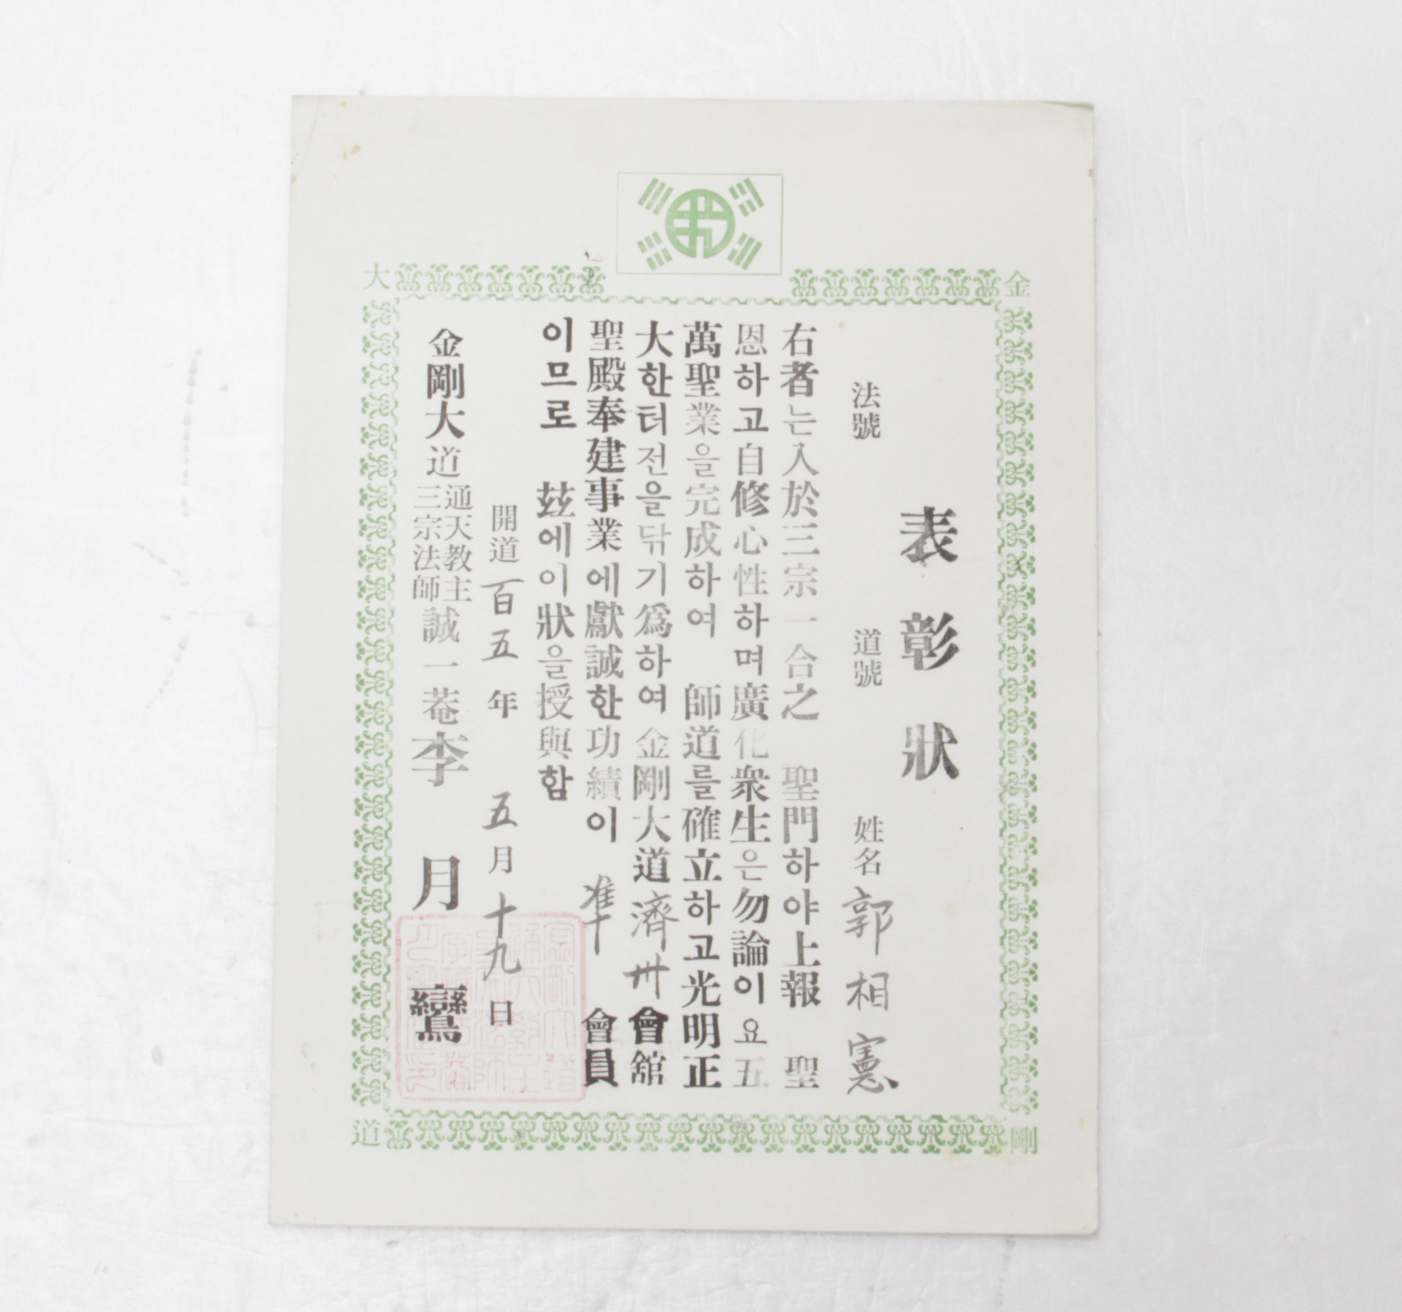 金
剛
大
道
表彰狀
法號 道號 姓名 郭相憲
右者는入於三宗一合之 聖門하야上報 聖
恩하고自修心性하며廣化衆生은勿論이요五
萬聖業을完成하여 師道를確立하고光明正
大한터전을닦기爲하여金剛大道濟卅會舘
聖殿奉建事業에獻誠한功績이 準 會員
이므로 玆에이狀을授與함
開道百五年 五月十九日
金剛大道通天教主三宗法師誠一菴李月鸞